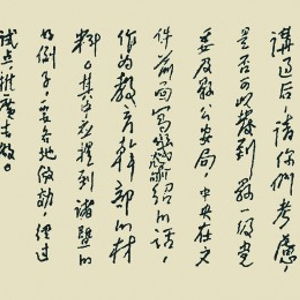 講过后，请你们考慮，
是否可以發到县一级党
委及县公安局，中央在文
件前面写幾句介紹的话，
作为教育幹部的材
料。其中应提到诸暨的
好例子，要各地仿効，经过
试点，推廣去做。